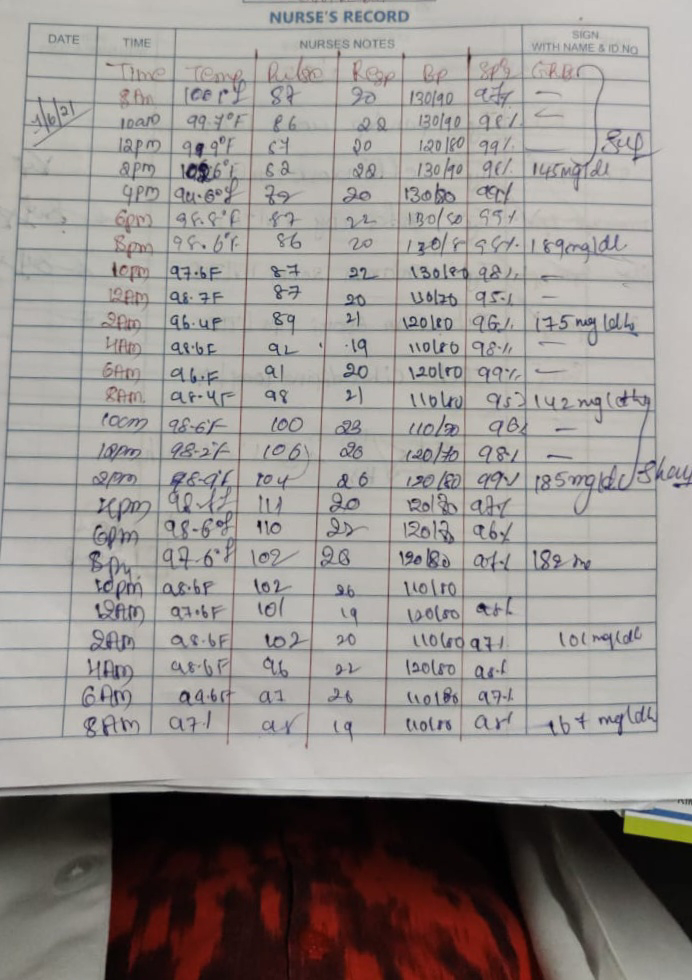 NURSE'S RECORD
DATE TIME NURSES NOTES SIGN WITH NAME & ID NO
Time Temp Pulse Resp Bp SpO2 GRBS
8Am 87 20 130/90 97%
1/6/21 10am 99.7°F 86 22 130/90 98% —
12pm 99.9°F 67 20 120/80 99% —
2pm 62 22 130/90 98% 145mg/dl
4pm 20 130/80 99%
6pm 98.8°F 87 22 130/80 99%
8pm 98.6°F 86 20 130/8 98% 189mg/dl
10pm 97.6F 87 22 130/80 98% —
12Am 98.7F 87 20 110/70 95% —
2Am 96.4F 89 21 120/80 96% 175 mg/dl
4Am 98.6F 92 19 110/80 98% —
6Am 96.F 91 20 120/80 99% —
8Am 98.4F 98 21 110/80 142 mg/dl
10am 98.6°F 100 23 110/70 —
12pm 98.2°F 106 26 120/70 98% —
2pm 98.9°F 104 26 120/80 99% 185mg/dl
4pm 111 20 97%
6pm 98.6°F 110 22 96%
8pm 97.6°F 102 26 120/80 97% 182
10pm 98.6F 102 26 110/80
12Am 97.6F 101 19 120/80 98%
2Am 98.6F 102 20 110/80 97% 101 mg/dl
4Am 98.6F 96 22 120/80 98%
6Am 97 26 110/80 97%
8Am 97% 98 19 110/80 98% 167 mg/dl